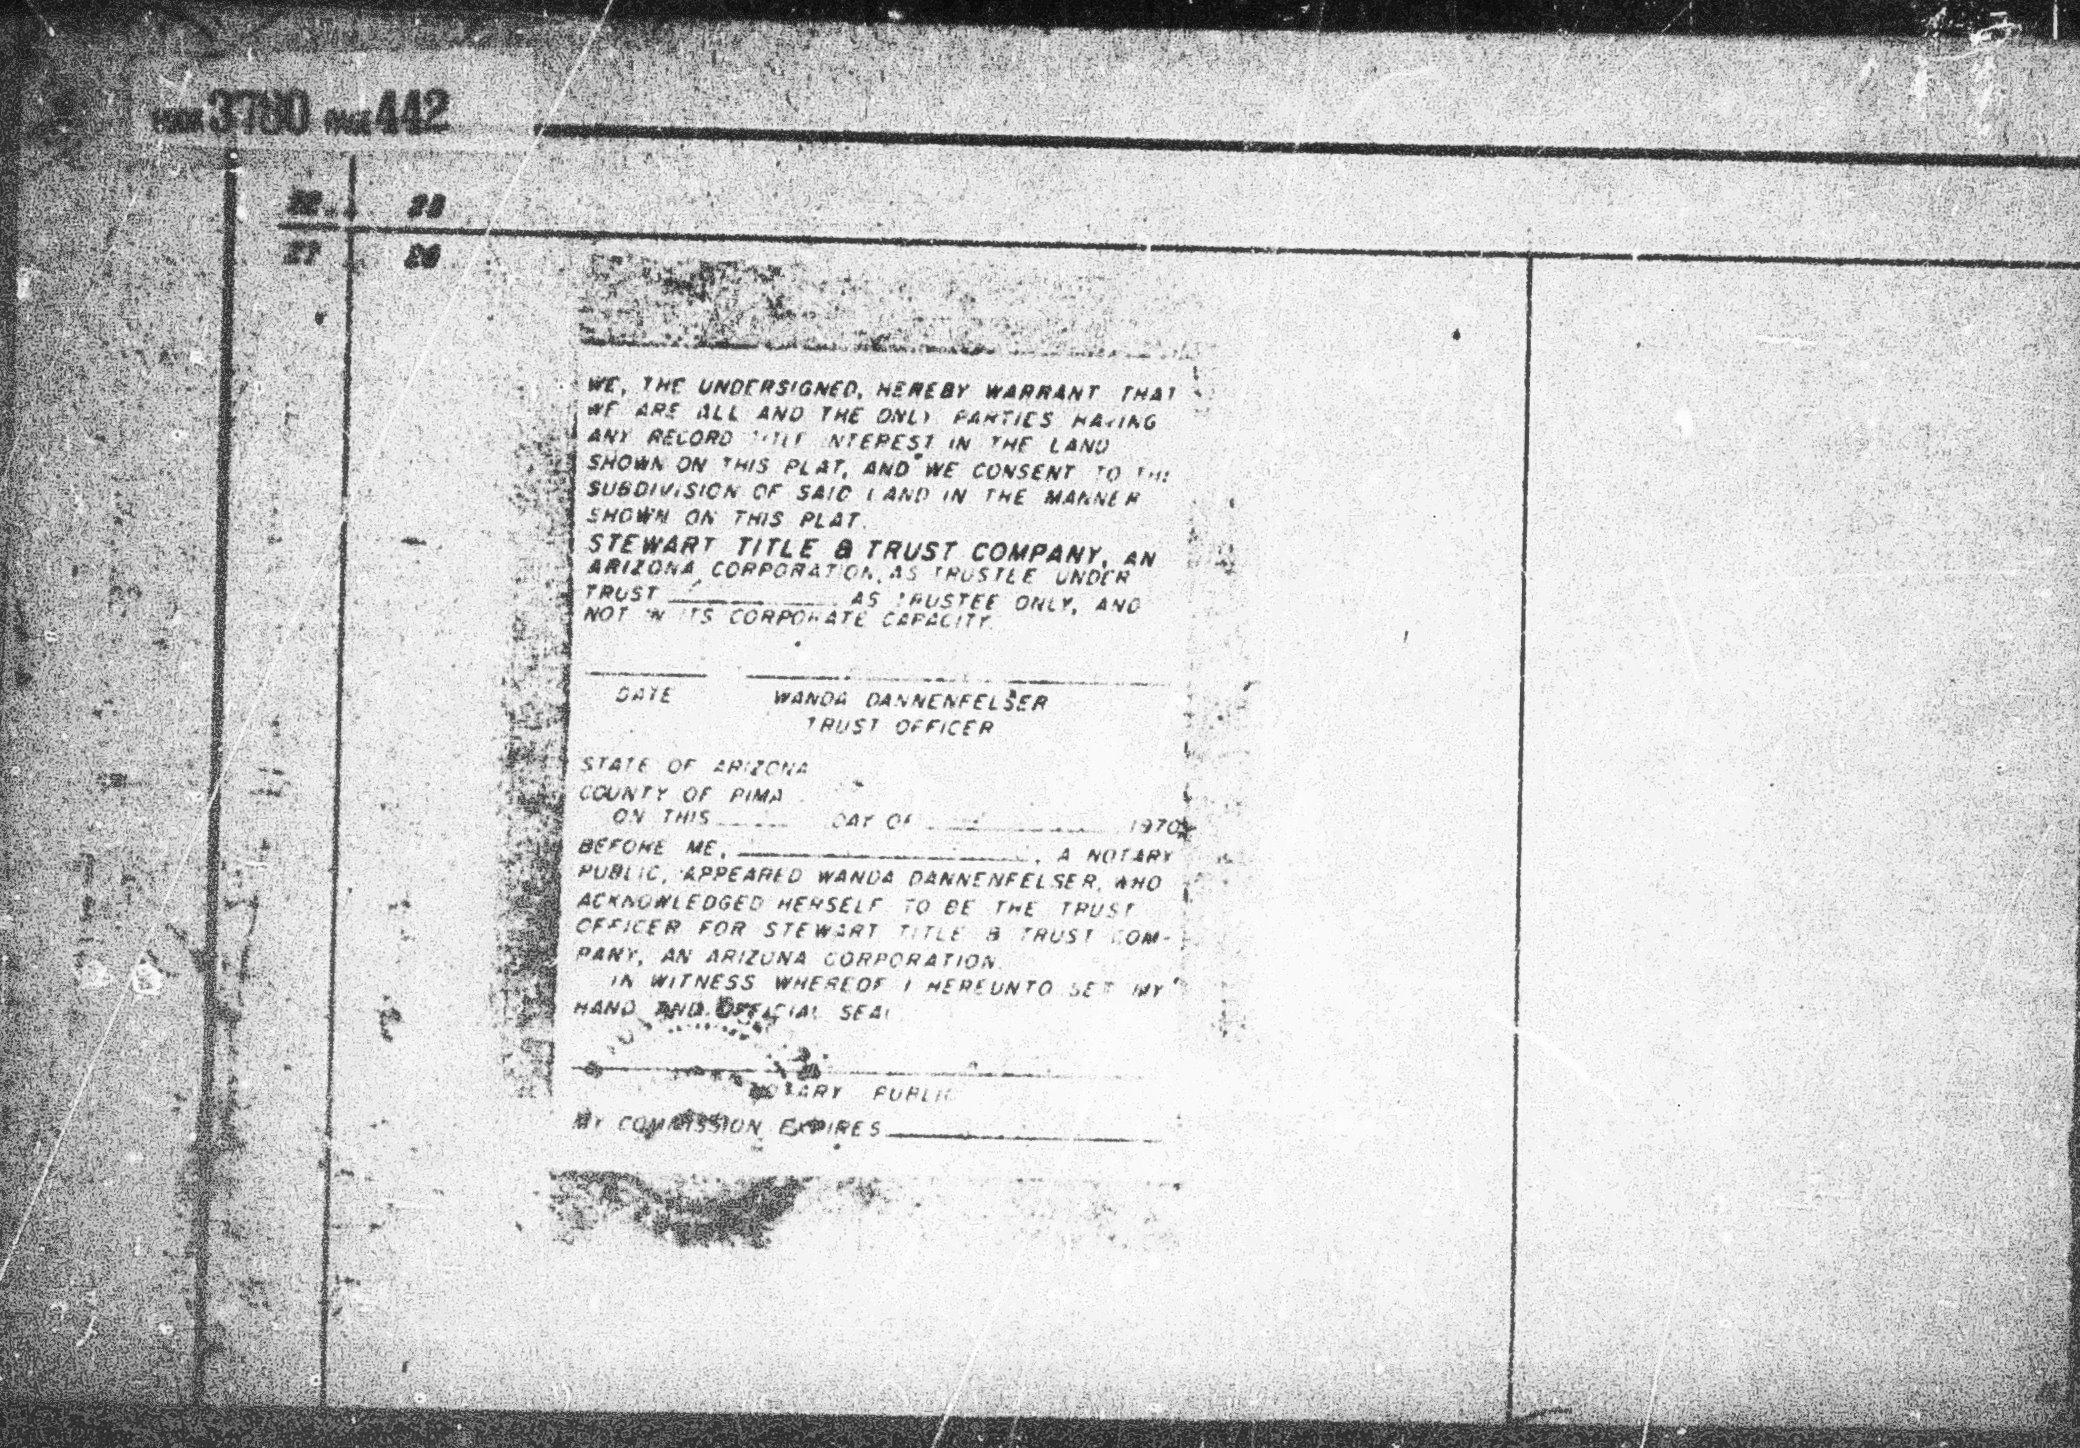 BOOK 3780 PAGE 442
22 23
27 26
WE, THE UNDERSIGNED, HEREBY WARRANT THAT
WE ARE ALL AND THE ONLY PARTIES HAVING
ANY RECORD TITLE INTEREST IN THE LAND
SHOWN ON THIS PLAT, AND WE CONSENT TO THE
SUBDIVISION OF SAID LAND IN THE MANNER
SHOWN ON THIS PLAT.
STEWART TITLE & TRUST COMPANY, AN
ARIZONA CORPORATION, AS TRUSTEE UNDER
TRUST ____________ AS TRUSTEE ONLY, AND
NOT IN ITS CORPORATE CAPACITY.
DATE WANDA DANNENFELSER
TRUST OFFICER
STATE OF ARIZONA
COUNTY OF PIMA
ON THIS ______ DAY OF ____________ 1970,
BEFORE ME, ____________________, A NOTARY
PUBLIC, APPEARED WANDA DANNENFELSER, WHO
ACKNOWLEDGED HERSELF TO BE THE TRUST
OFFICER FOR STEWART TITLE & TRUST COM-
PANY, AN ARIZONA CORPORATION.
IN WITNESS WHEREOF I HEREUNTO SET MY
HAND AND OFFICIAL SEAL
NOTARY PUBLIC
MY COMMISSION EXPIRES ____________________